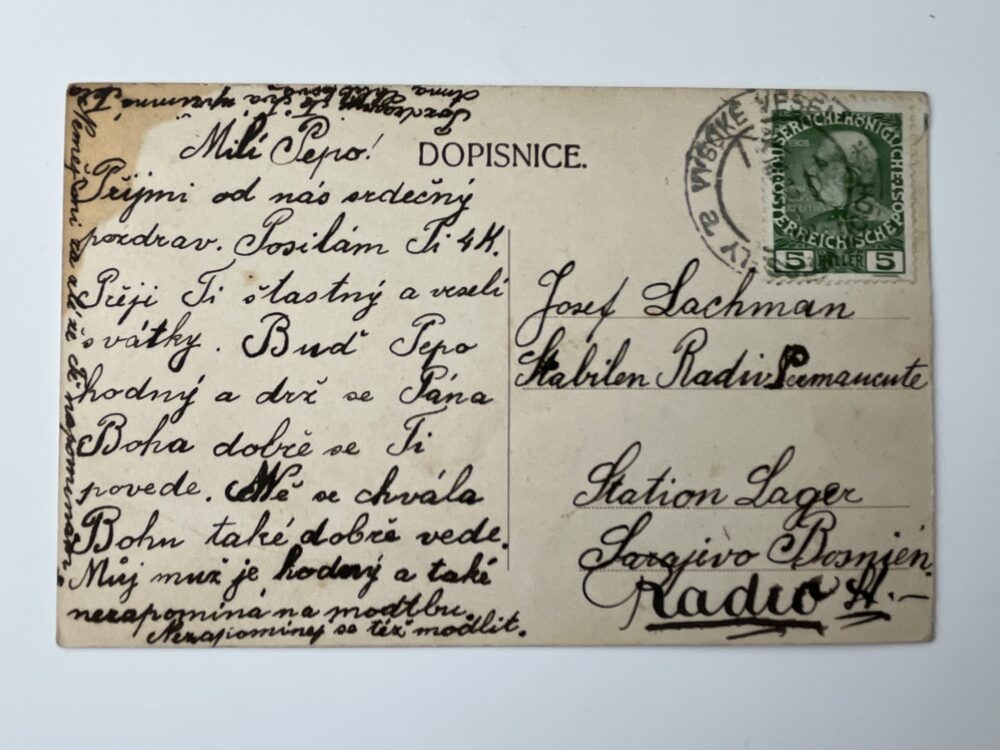 Milí Pepo!
Přijmi od nás srdečný
pozdrav. Posílám Ti 4K.
Přeji Ti štastný a veselí
svátky. Buď Pepo
hodný a drž se Pána
Boha dobře se Ti
povede. Mě se chvála
Bohu také dobře vede.
Můj muž je hodný a také
nezapomíná na modtbu.
Nezapomínej se též modlit.
Neměj mi za zlé že Tě napomínám.
Pozdravuje
Anna
DOPISNICE.
VYSOKÉ VESELÝ
KAISERLICHE KÖNIGLICHE ÖSTERREICHISCHE POST
5 HELLER 5
Josef Lachman
Stabilen Radio Permanente
Station Lager
Sarajivo Bosnien.
Radio St.-